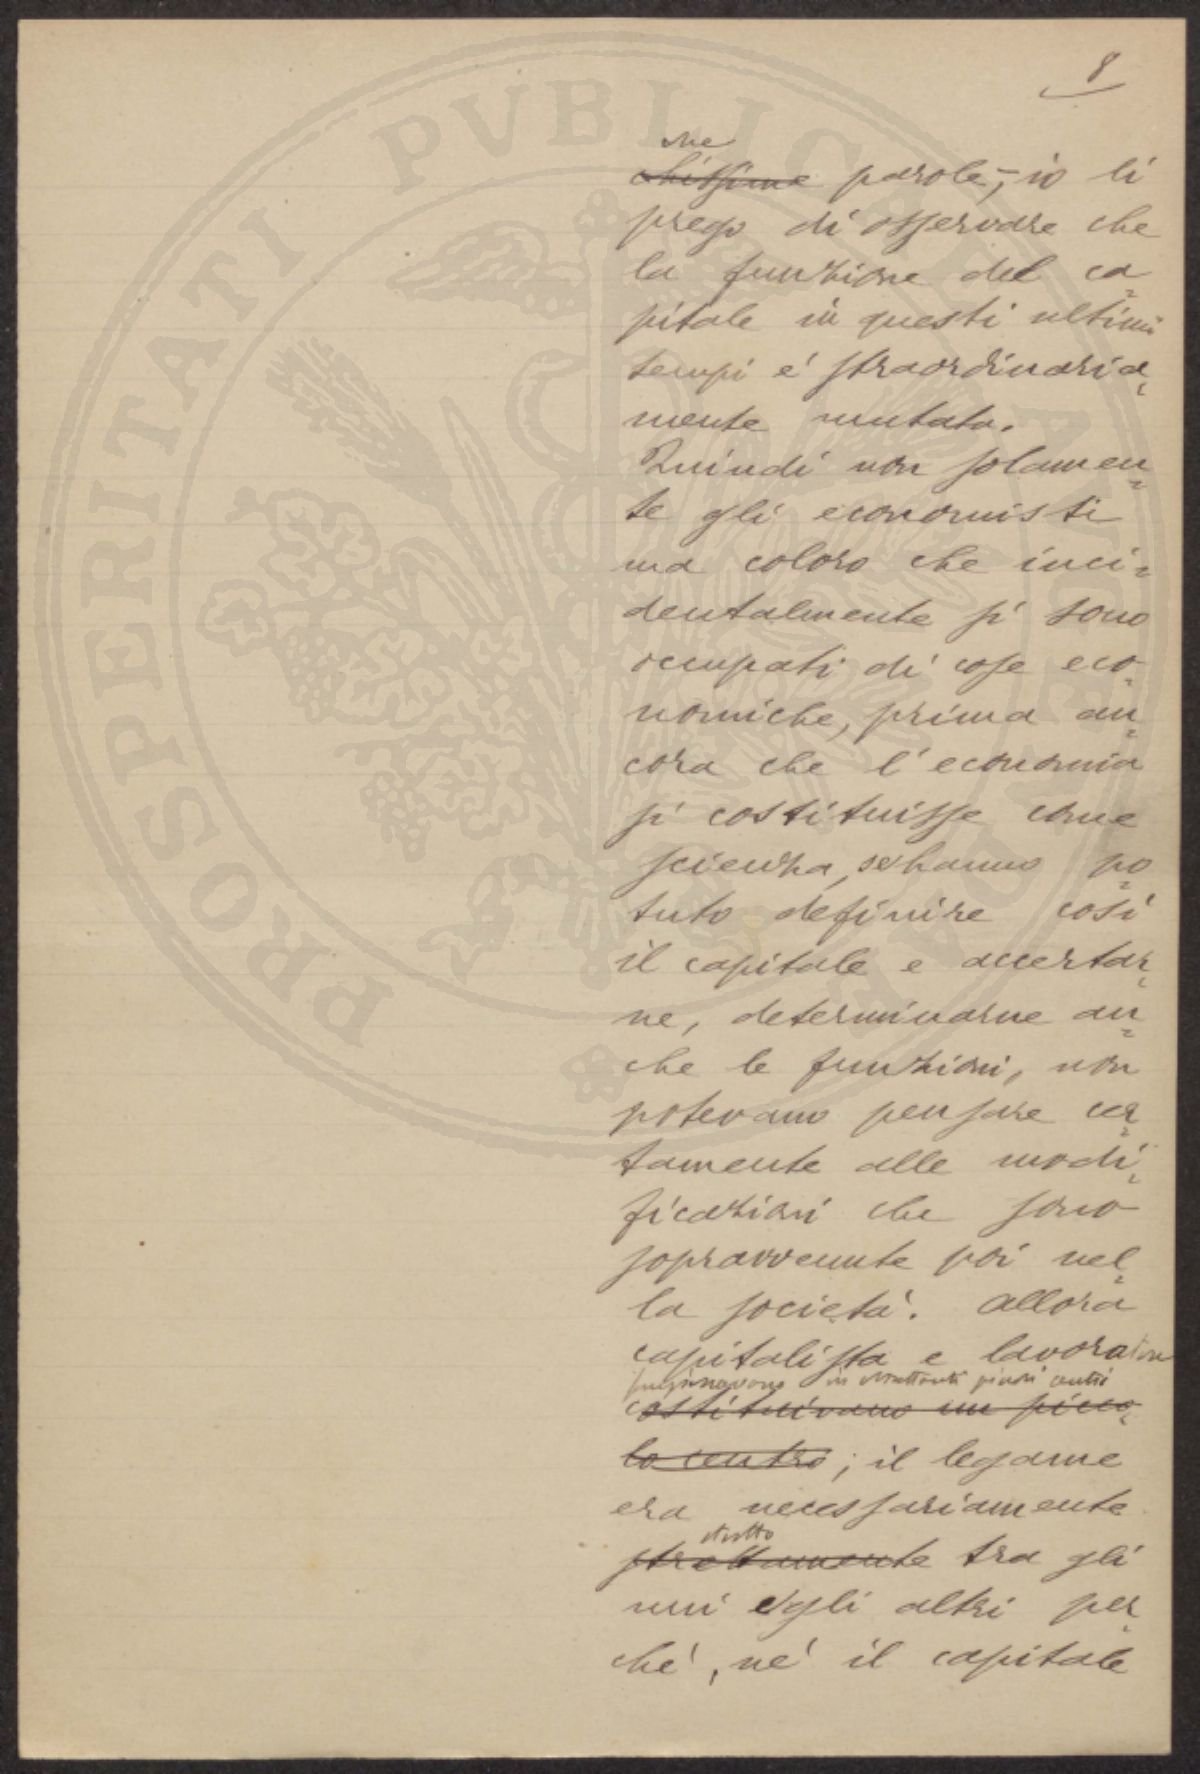 8
che
chissime parole, – io li
prego di osservare che
la funzione del ca=
pitale in questi ultimi
tempi e' straordinaria=
mente mutata.
Quindi non solamen=
te gli economisti
ma coloro che inci=
dentalmente si sono
occupati di cose eco=
nomiche, prima an=
cora che l'economia
si costituisse come
scienza, se hanno po=
tuto definire cosi
il capitale e accertar=
ne, determinarne an=
che le funzioni, non
potevano pensare cer=
tamente alle modi=
ficazioni che sono
sopravvenute poi nel=
la societa'. Allora
capitalista e lavoratore
in altrettanti piccoli centri
costituivano un picco=
lo centro; il legame
era necessariamente
stretto
strettamente tra gli
uni e gli altri per=
ché, né il capitale
PROSPERITATI PVBLICAE